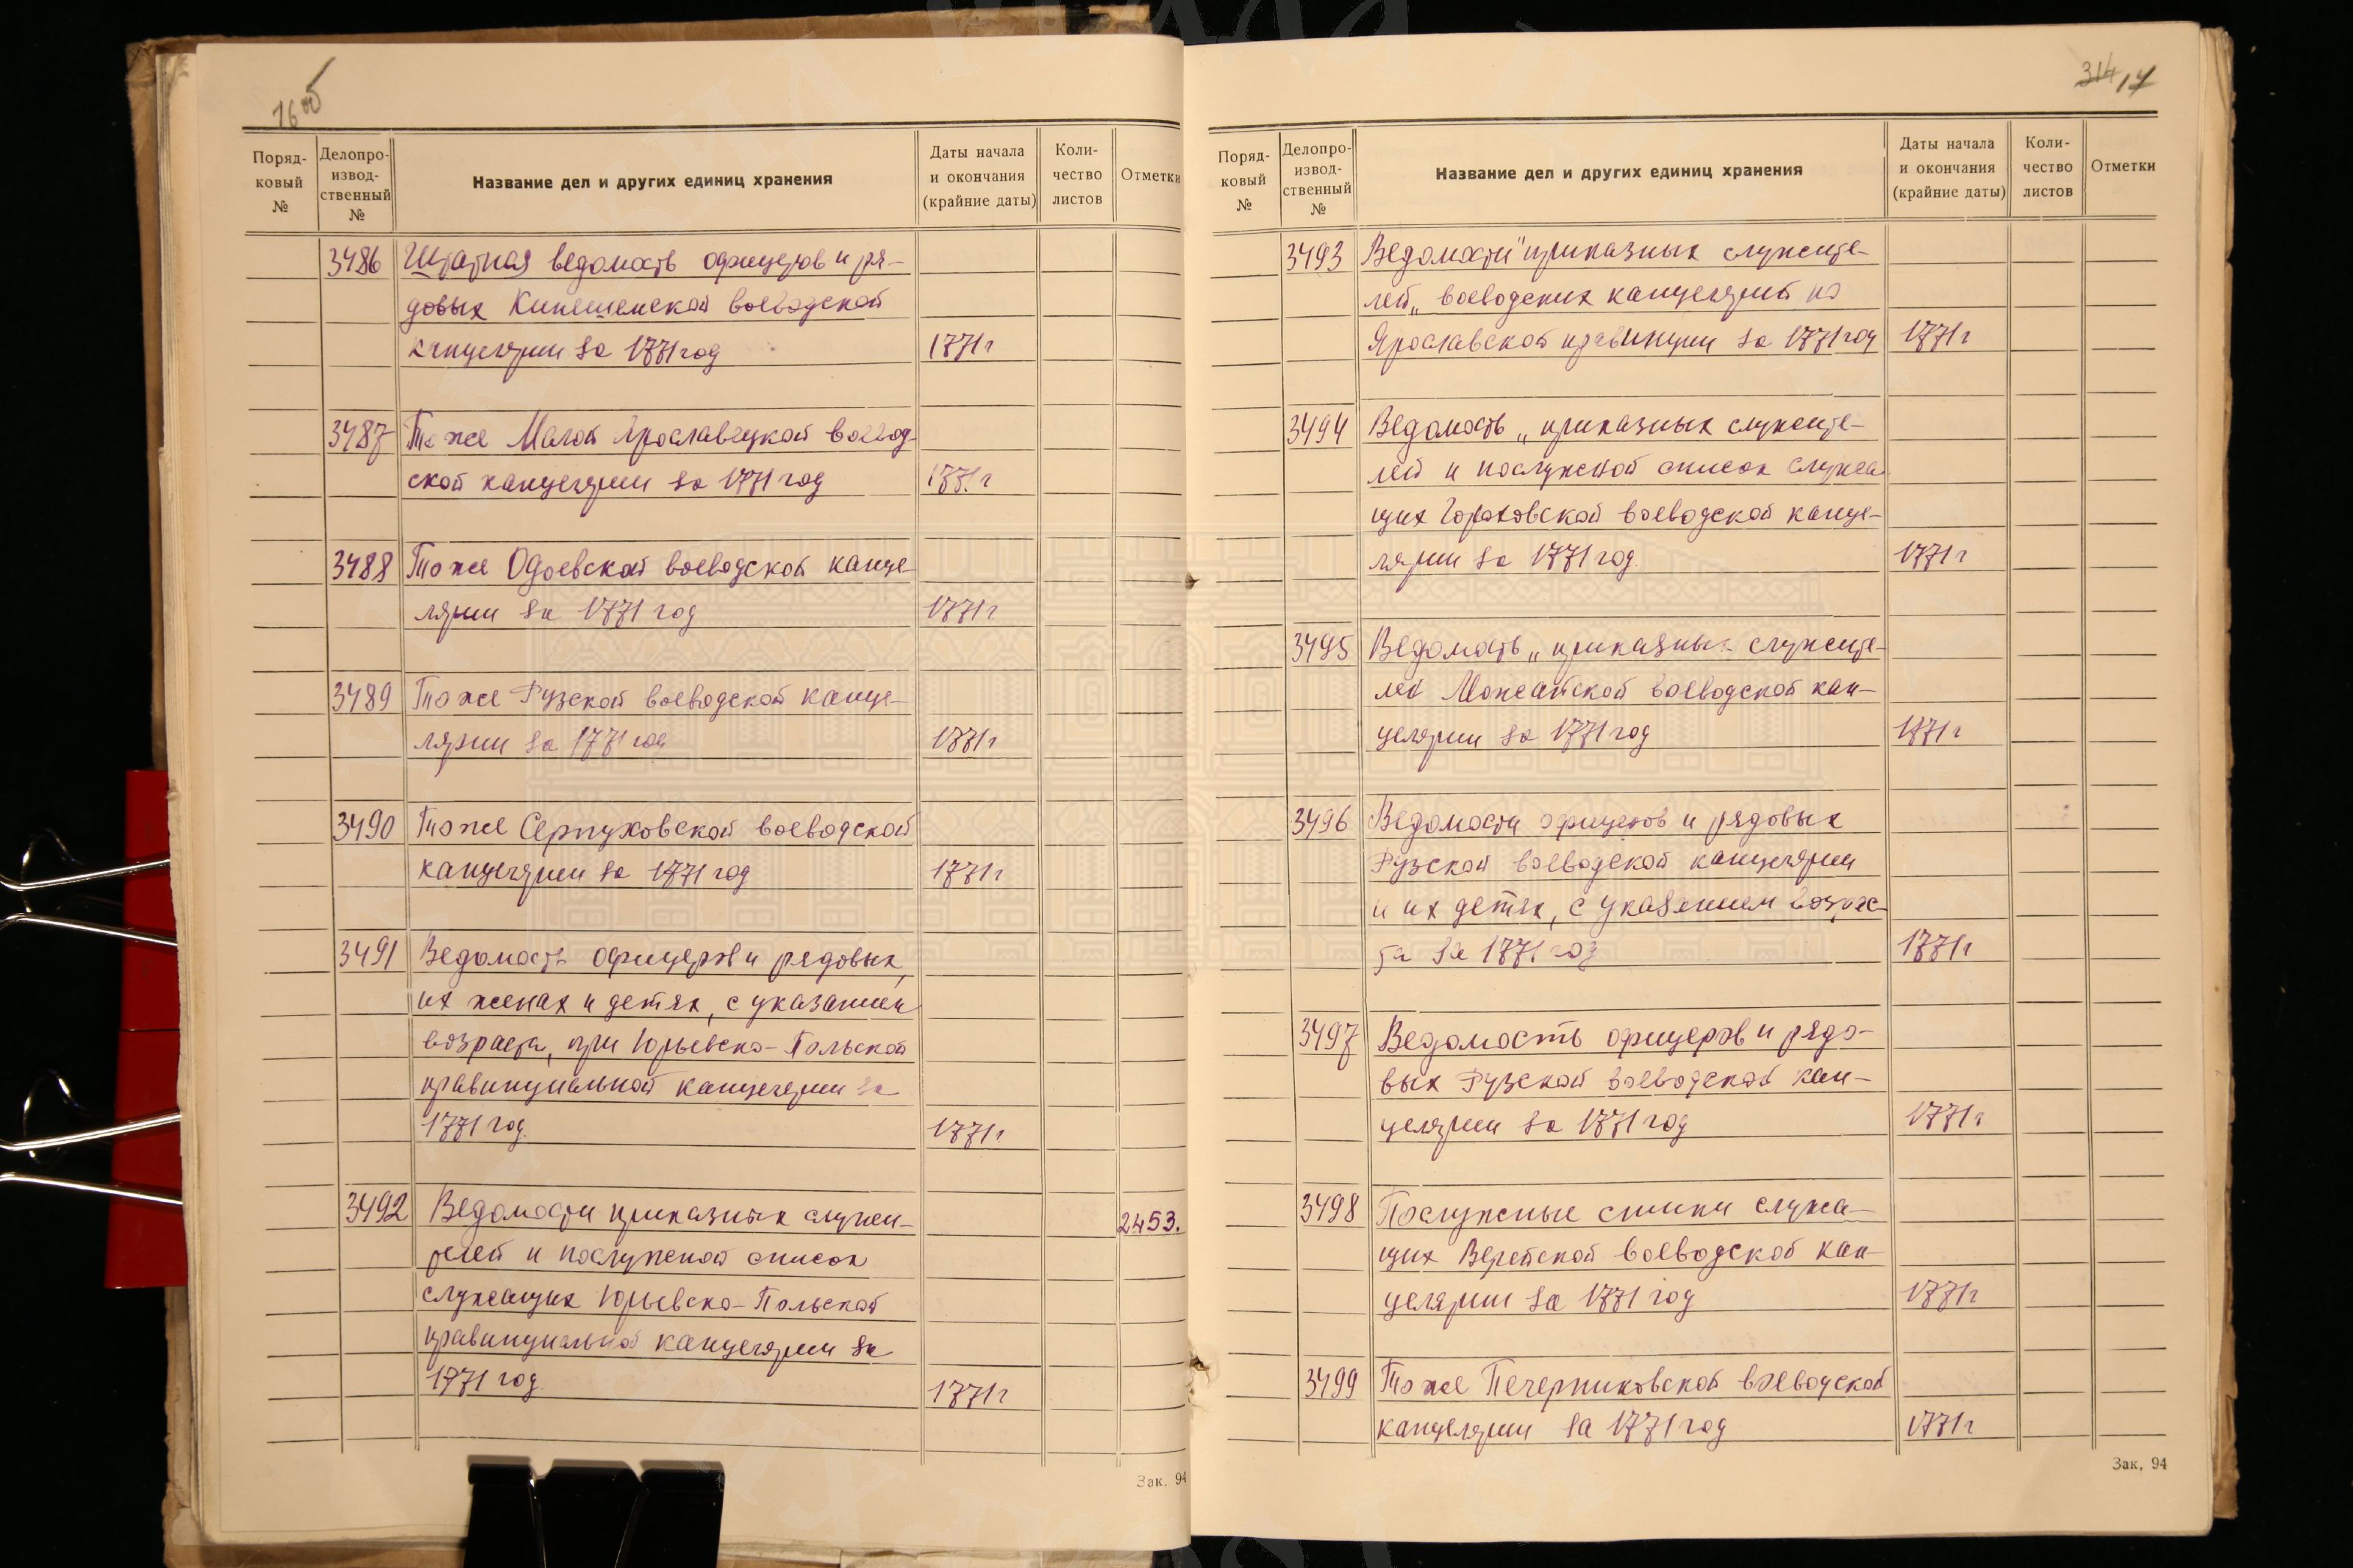 16 об
Поряд-
ковый
№
Делопро-
извод-
ственный
№
Название дел и других единиц хранения
Даты начала
и окончания
(крайние даты)
Коли-
чество
листов
Отметки
3486 Штатная ведомость офицеров и ря-
довых Кинешемской воеводской
канцелярии за 1771 год 1771 г
3487 То же Малой Ярославецкой воевод-
ской канцелярии за 1771 год 1771 г
3488 То же Одоевской воеводской канце-
лярии за 1771 год 1771 г
3489 То же Рузской воеводской канце-
лярии за 1771 год 1771 г
3490 То же Серпуховской воеводской
канцелярии за 1771 год 1771 г
3491 Ведомость офицеров и рядовых,
их женах и детях, с указанием
возраста, при Юрьевско-Польской
правинциальной канцелярии за
1771 год 1771 г
3492 Ведомости приказных служи- 2453.
телей и послужной список
служащих Юрьевско-Польской
правинциальной канцелярии за
1771 год 1771 г
Зак. 94
314 17
Поряд-
ковый
№
Делопро-
извод-
ственный
№
Название дел и других единиц хранения
Даты начала
и окончания
(крайние даты)
Коли-
чество
листов
Отметки
3493 Ведомости "приказных служите-
лей„ воеводских канцелярий из
Ярославской правинции за 1771 год 1771 г
3494 Ведомость „приказных служите-
лей и послужной список служа
щих Гороховской воеводской канце-
лярии за 1771 год. 1771 г
3495 Ведомость „приказных служите-
лей Можайской воеводской кан-
целярии за 1771 год 1771 г
3496 Ведомости офицеров и рядовых
Рузской воеводской канцелярии
и их детях, с указанием возрас-
та за 1771 год 1771 г
3497 Ведомость офицеров и рядо-
вых Рузской воеводской кан-
целярии за 1771 год 1771 г
3498 Послужные списки служа-
щих Верейской воеводской кан-
целярии за 1771 год 1771 г
3499 То же Печерниковской воеводской
канцелярии за 1771 год 1771 г
Зак, 94